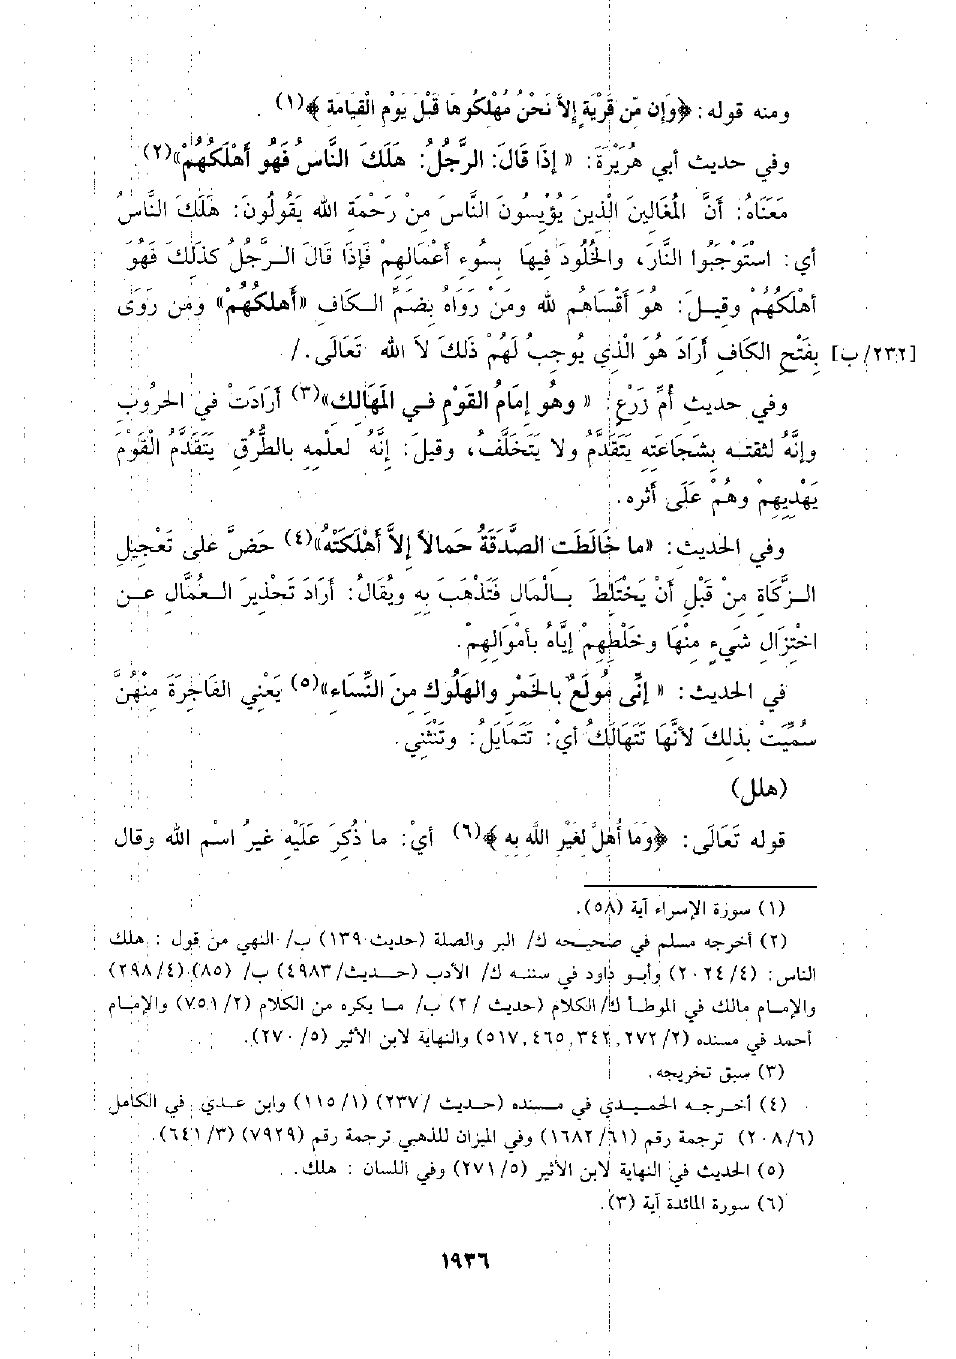 ومنه قوله: ﴿وَإِن مِّن قَرْيَةٍ إِلاَّ نَحْنُ مُهْلِكُوهَا قَبْلَ يَوْمِ الْقِيَامَةِ﴾(١).
وفي حديث أبي هُرَيْرَةَ: « إِذَا قَالَ: الرَّجُلُ: هَلَكَ النَّاسُ فَهُو أَهْلَكُهُمْ»(٢)
مَعَنَاهُ: أَنَّ المُغَالينَ الَّذِينَ يُؤْيِسُونَ النَّاسَ مِنْ رَحْمَةِ الله يَقُولُونَ: هَلَكَ النَّاسُ
أي: اسْتَوْجَبُوا النَّارَ، والخُلُودَ فِيهَا بِسُوءِ أَعْمَالِهِمْ فَإِذَا قَالَ الرَّجُلُ كذَلكَ فَهُوَ
أَهْلَكُهُمْ وقيلَ: هُوَ أَقْسَاهُم لله ومَنْ رَوَاهُ بِضَمِّ الكَافِ «أَهلكُهُمْ» ومَن رَوَى
[٢٣٢/ ب] بِفَتْحِ الكَافِ أَرَادَ هُوَ الَّذِي يُوجِبُ لَهُمْ ذَلكَ لاَ الله تَعَالَى. /
وفي حديث أُمِّ زَرْعٍ: « وهُو إِمَامُ القَوْمِ فِي المَهَالِك»(٣) أَرَادَتْ في الحُرُوبِ
وإِنَّهُ لثقته بِشَجَاعَته يَتَقَدَّمُ ولا يَتَخَلَّفُ، وقيلَ: إِنَّهُ لعِلْمِه بالطُّرُقِ يَتَقَدَّمُ القَوْمَ
يَهْدِيهِمْ وهُمْ عَلَى أَثره.
وفي الحَديث: «ما خَالَطَت الصَّدَقَةُ حَمالاً إِلاَّ أَهْلَكَتْهُ»(٤) حَضٌّ على تَعْجِيلِ
الزَّكَاةِ مِنْ قَبْلِ أَنْ يَخْتَلطَ بالمَالِ فَتَذْهَبَ بِهِ ويُقَالُ: أَرَادَ تَحْذِيرَ العُمَّالِ عن
اخْتِزَالِ شَيءٍ مِنْهَا وخَلْطِهِمْ إِيَّاهُ بأَمْوَالِهِمْ.
في الحَديث: « إِنِّى مُولَعٌ بالخَمْرِ والهَلُوك مِنَ النِّسَاءِ»(٥) يَعْنِي الفَاجِرَةَ مِنْهُنَّ
سُمِّيَتْ بذلكَ لأَنَّهَا تَتَهَالَكُ أيْ: تَتَمَايَلُ: وتَنْثَنِي.
(هلل)
قوله تَعَالَى: ﴿وَمَا أُهلَّ لِغَيْرِ اللَّهِ بِه﴾(٦) أيْ: ما ذُكِرَ عَلَيْهِ غيرُ اسْمِ الله وقال
(١) سورة الإسراء آية (٥٨).
(٢) أخرجه مسلم في صحيحه ك/ البر والصلة (حديث ١٣٩) ب/ النهي من قول : هلك
الناس: (٤/ ٢٠٢٤) وأبو داود في سننه ك/ الأدب (حديث/ ٤٩٨٣) ب/ (٨٥) (٤/ ٢٩٨)
والإمام مالك في الموطأ ك/ الكلام (حديث / ٢) ب/ ما يكره من الكلام (٢/ ٧٥١) والإمام
أحمد في مسنده (٢/ ٢٧٢, ٣٤٢, ٤٦٥, ٥١٧) والنهاية لابن الأثير (٥/ ٢٧٠).
(٣) سبق تخريجه.
(٤) أخرجه الحميدي في مسنده (حديث /٢٣٧) (١/ ١١٥) وابن عدي في الكامل
(٦/ ٢٠٨) ترجمة رقم (٦١/ ١٦٨٢) وفي الميزان للذهبي ترجمة رقم (٧٩٢٩) (٣/ ٦٤١).
(٥) الحديث في النهاية لابن الأثير (٥/ ٢٧١) وفي اللسان : هلك.
(٦) سورة المائدة آية (٣).
١٩٣٦